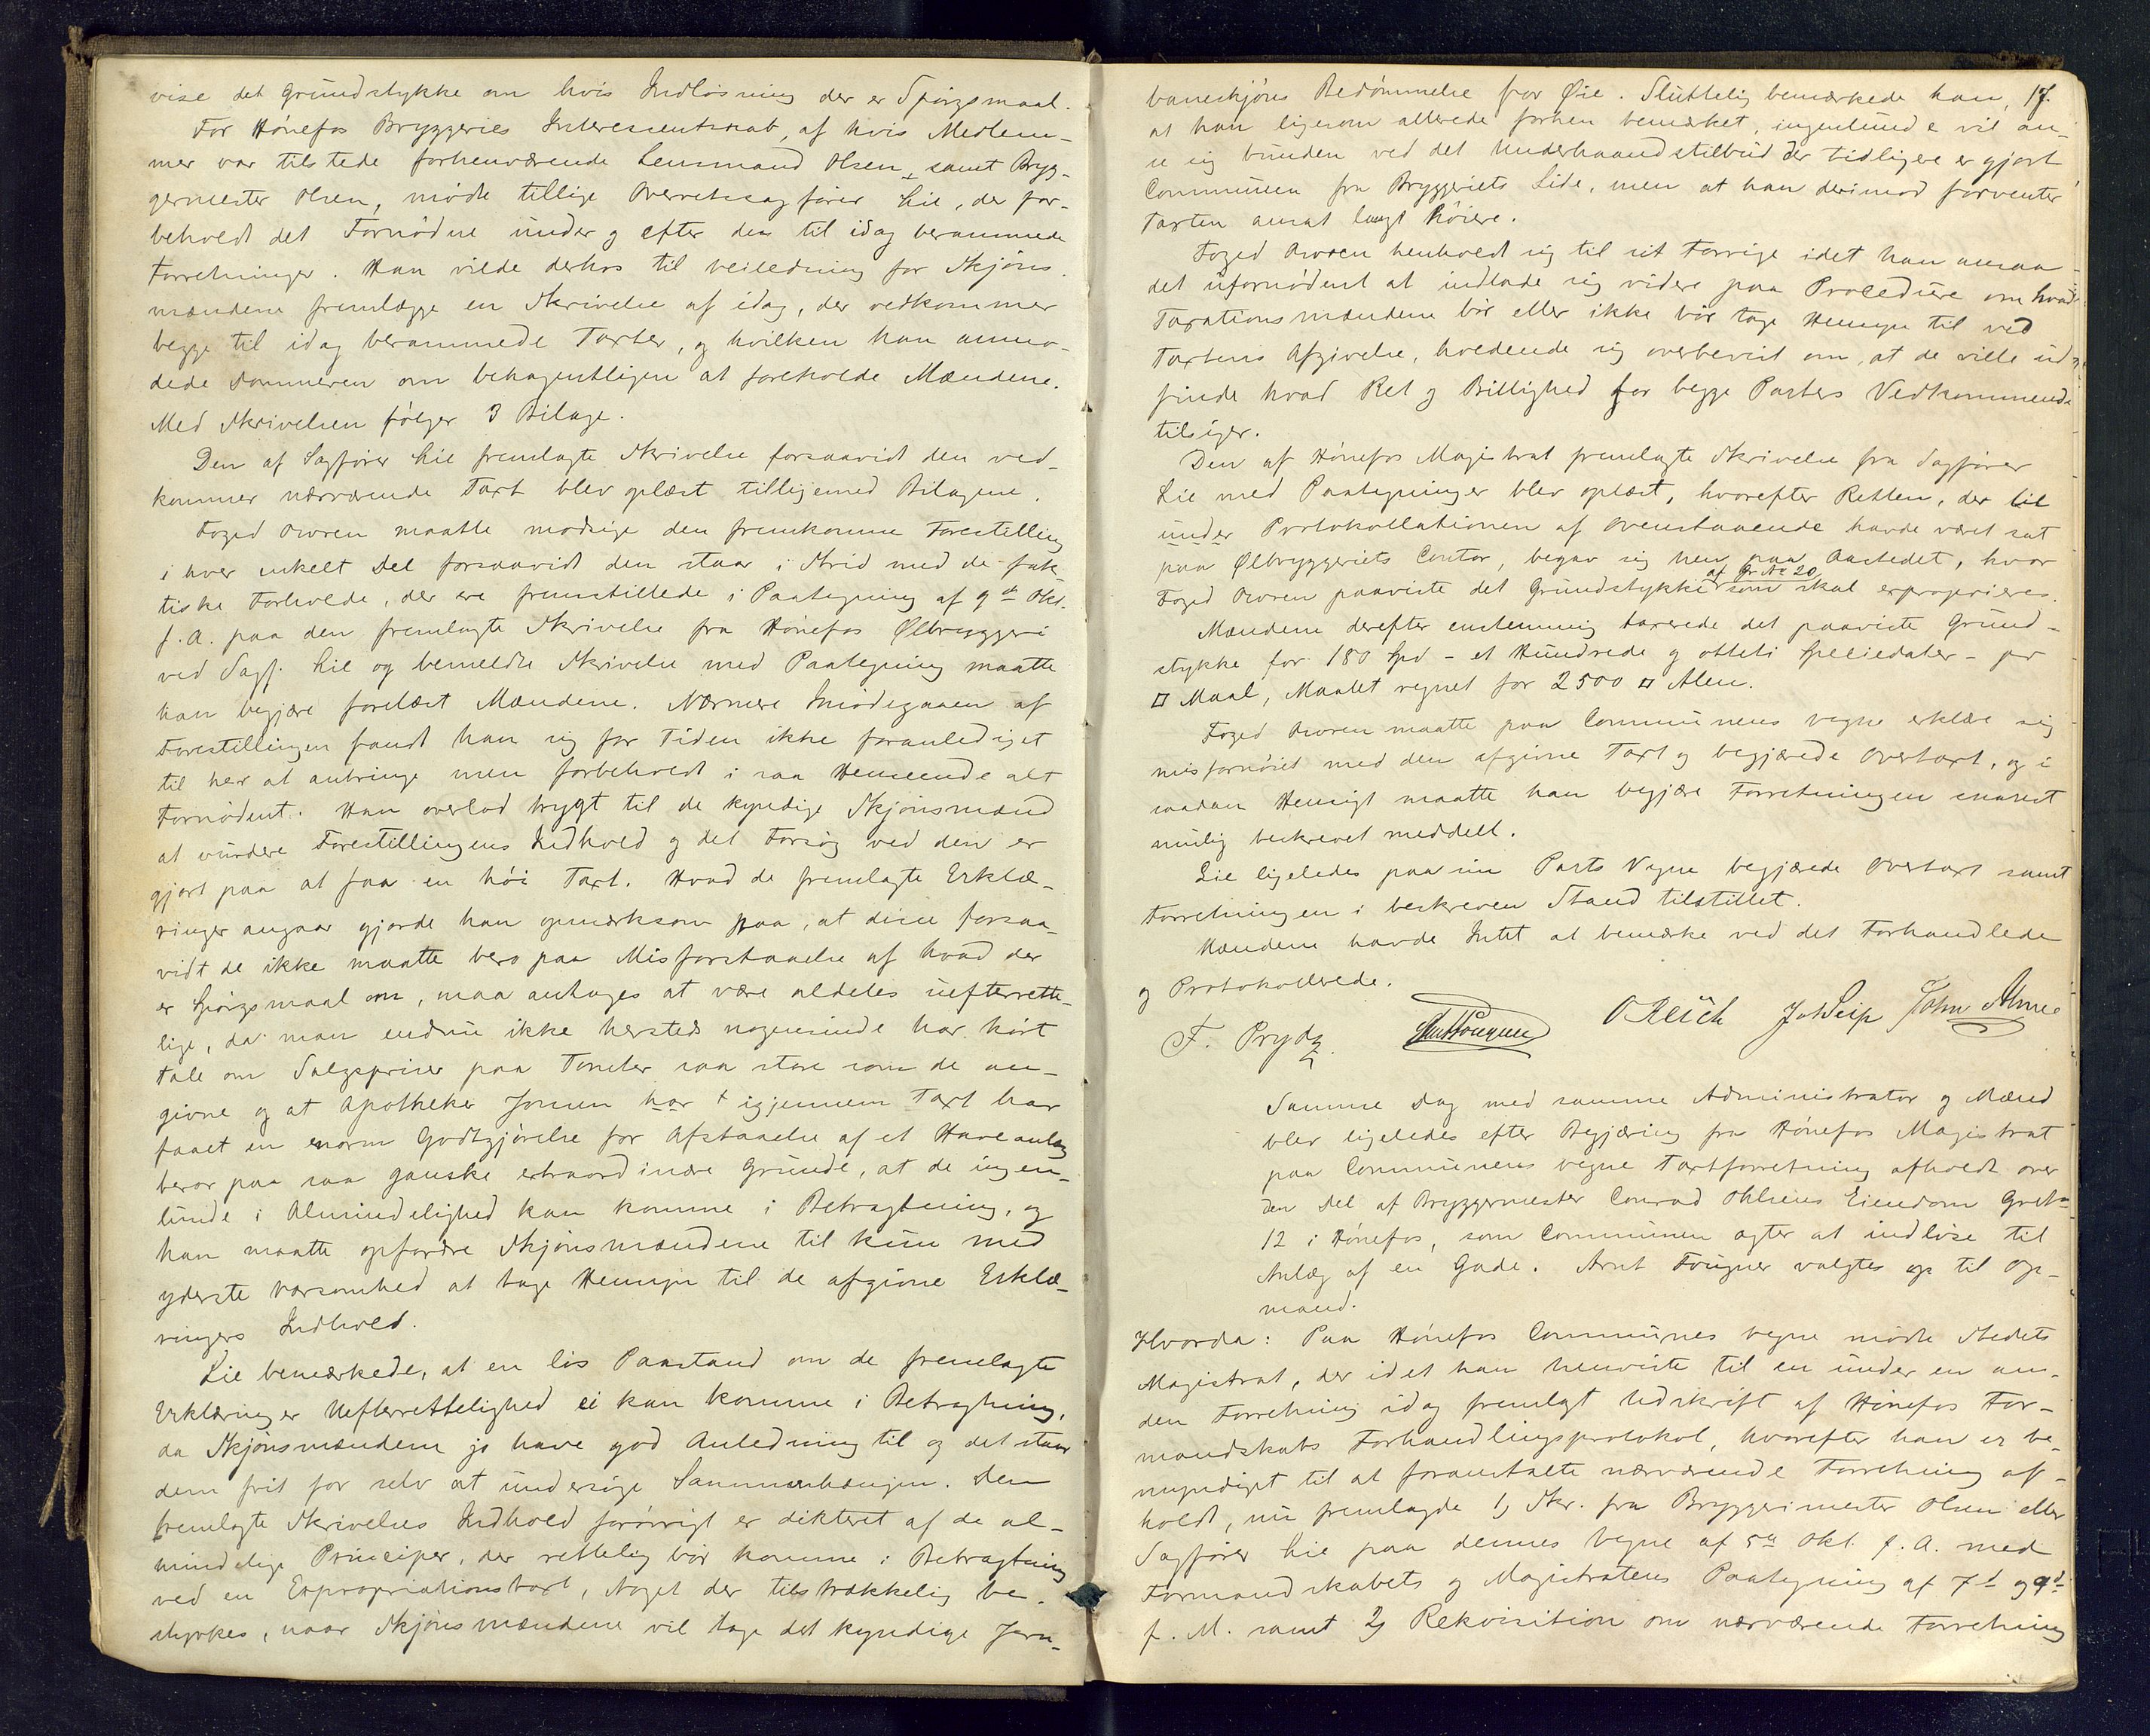 vise det Grundstykke om hvis Indløsning der er Spørgsmaal.
For Hønefos Bryggeries Interessentskab, af hvis Medlem-
mer var tilstede forhenværende Lensmand Olsen, samt Bryg-
germester Olsen, mødte tillige Overretssagfører Lie, der for-
beholdt det Fornødne under og efter den til idag berammede
Forretninger. Han vilde derhos til veiledning for Skjøns-
mændene fremlægge en Skrivelse af idag, der vedkommer
begge til idag berammede Taxter, og hvilken han anmo-
dede Dommeren om behagentligen at foreholde Mændene.
Med Skrivelsen følger 3 Bilage.
Den af Sagfører Lie fremlagte Skrivelse forsaavidt den ved-
kommer nærværende Taxt blev oplæst tilligemed Bilagene.
Foged Owren maatte modsige den fremkomne Forestilling
i hver enkelt Del forsaavidt den staar i Strid med de fak
tiske Forholde, der ere fremstillede i Paategning af 9de Okt.
f. A. paa den fremlagte Skrivelse fra Hønefos Ølbryggeri
ved Sagf. Lie og bemeldte Skrivelse med Paategning maatte
han begjære forelæst Mændene. Nærmere Imødegaaen af
Forestillingen fandt han sig for Tiden ikke foranlediget
til her at anbringe men forbeholdt i saa Henseende alt
Fornødent. Han overlod trygt til de kyndige Skjønsmænd
at vurdere Forestillingens Indhold og det Forsøg ved den er
gjort paa at faa en høi Taxt. Hvad de fremlagte Erklæ-
ringer angaar gjorde han opmærksom paa, at disse forsaa-
vidt de ikke maatte bero paa Misforstaaelse af hvad der
er Spørgsmaal om, maa antages at være aldeles uefterrette-
lige, da man endnu ikke hersteds nogensinde har hørt
Tale om Salgspriser paa Tomter saa store som de an-
givne og at Apotheker Jonsen har igjennem Taxt har
faaet en enorm Godtgjørelse for Afstaaelse af et Haveanlæg
beror paa saa ganske extraordinære Grunde, at de ingen-
lunde i Almindelighed kan komme i Betragtning, og
han maatte opfordre Skjønsmændene til kun med
yderste varsomhed at tage Hensyn til de afgivne Erklæ-
ringers Indhold.
Lie bemærkede, at en løs Paastand om de fremlagte
Erklæringers Uefterrettelighed ei kan komme i Betragtning,
da Skjønsmændene jo have god Anledning til og det staar
dem frit for selv at undersøge Sammenhængen. Den
fremlagte Skrivelses Indhold forøvrigt er dikteret af de al-
mindelige Principer, der rettelig bør komme i Betragtning
ved en Expropriationstaxt, Noget der tilstrækkelig be-
styrkes, naar Skjønsmændene vil tage det kyndige Jern-
17.
baneskjøns Bedømmelse for Øie. Sluttelig bemærkede han,
at han ligesom allerede forhen bemærket, ingenlunde vil an-
se sig bunden ved det Underhaandstilbud der tidligere er gjort
Communen fra Bryggeriets Side, men at han derimod forventer
Taxten ansat langt høiere.
Foged Owren henholdt sig til sit Forrige idet han ansaa
det ufornødent at indlade sig videre paa Procedure om hvad
Taxationsmændene bør eller ikke bør tage Hensyn til ved
Taxtens Afgivelse, holdende sig overbevist om, at de ville ud-
finde hvad Ret og Billighed for begge Parters Vedkommende
tilsiger.
Den af Hønefos Magistrat fremlagte Skrivelse fra Sagfører
Lie med Paategninger blev oplæst, hvorefter Retten, der til
under Protokollationen af Ovenstaaende havde været sat
paa Ølbryggeriets Contor, begav sig hen paa Aastedet, hvor
Foged Owren paaviste det Grundstykke af Gr No 20 som skal exproprieres.
Mændene derefter enstemmig taxerede det paaviste Grund-
stykke for 180 Spd – et Hundrede og otteti Speciedaler – pr
□ Maal, Maalet regnet for 2500 □ Alen.
Foged Owren maatte paa Communens vegne erklære sig
misfornøiet med den afgivne Taxt og begjærede Overtaxt, og i
saadan Hensigt maatte han begjære Forretningen snarest
mulig beskrevet meddelt.
Lie ligeledes paa sin Parts Vegne begjærede Overtaxt samt
Forretningen i beskreven Stand tilstillet.
Mændene havde Intet at bemærke ved det Forhandlede
og Protokollerede.
F. Prydz. O Reich J. Seip John Alme
Samme Dag med samme Administrator og Mænd
blev ligeledes efter Begjæring fra Hønefos Magistrat
paa Communens vegne Taxtforretning afholdt over
den Del af Bryggermester Conrad Ohlsens Eiendom Gr No
12 i Hønefos, som Communen agter at indløse til
Anlæg af en Gade. Arnt Fougner valgtes op til Op-
mand.
Hvorda: Paa Hønefos Communes vegne mødte Stedets
Magistrat, der idet han henviste til en under en an-
den Forretning idag fremlagt Udskrift af Hønefos For-
mandskabs Forhandlingsprotokol, hvorefter han er be-
myndiget til at foranstalte nærværende Forretning af-
holdt, nu fremlagde 1) Skr. fra Bryggerimester Olsen eller
Sagfører Lie paa dennes Vegne af 5te Okt. f. A. med
Formandskabets og Magistratens Paategning af 7de og 9de
f. M. samt 2) Rekvisition om nærværende Forretning